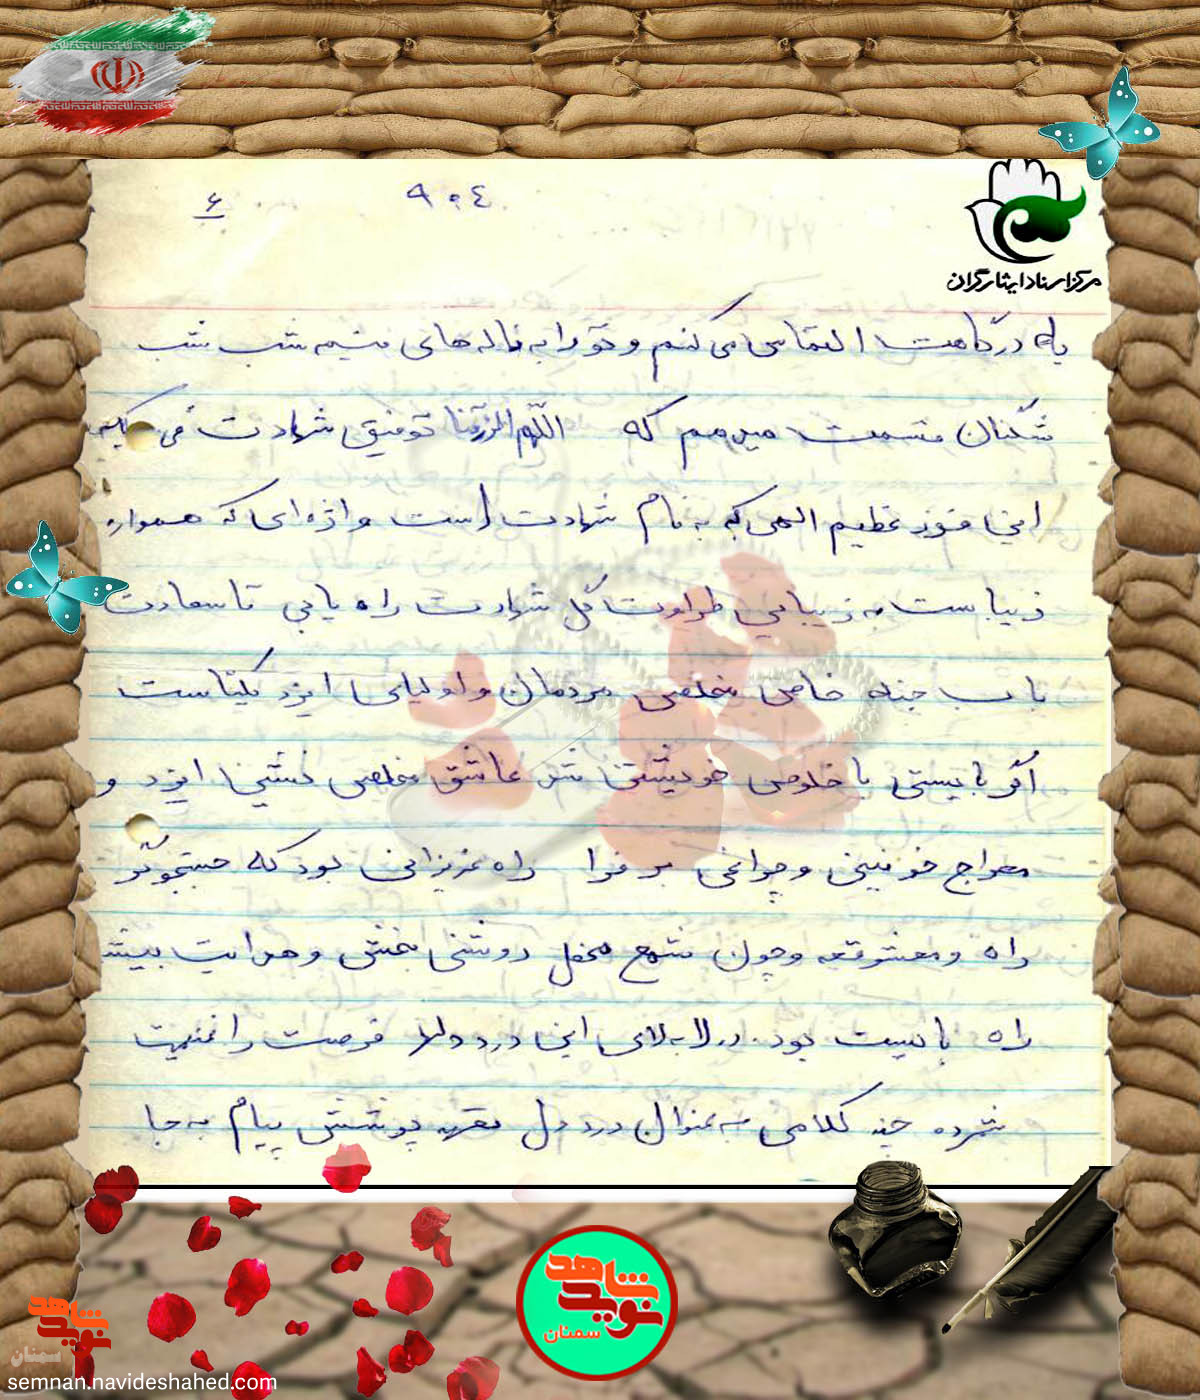 ۹۰٤
۶
مرکز اسناد ایثارگران
به درگاهت التماس می کنم و تو را به ناله های نیمه شب شب
شکنان قسمت میدهم که اللهم ارزقنا توفیق شهادت
این فوز عظیم الهی که به نام شهادت است واژه ای که همواره
زیباست به زیبایی طراوت گل شهادت راه یابی تا سعادت
باب جنه خاص مخلص مردمان و اولیای ایزد یکتاست
اگر بایستی با خلوص خویشتن شد عاشق مخلص نشین ایزد و
معراج خونین و چراغی بر فرا راه عزیزانی بود که جستجوگر
راه و معشوقه و چون شمع محفل روشنی بخش و هدایت بیش
راه بایست بود. در لابه لای این درد دلها فرصت را غنیمت
شمرده چند کلامی به عنوان درد دل پیام به جا
شاهد
نوید
سمنان
شاهد
نوید
سمنان
semnan.navideshahed.com